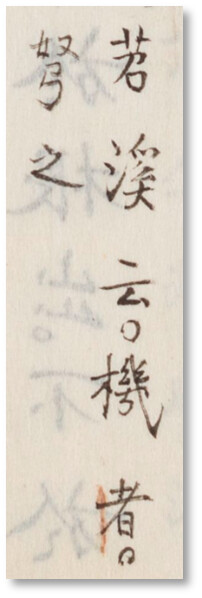 苕溪云。機者。
弩之